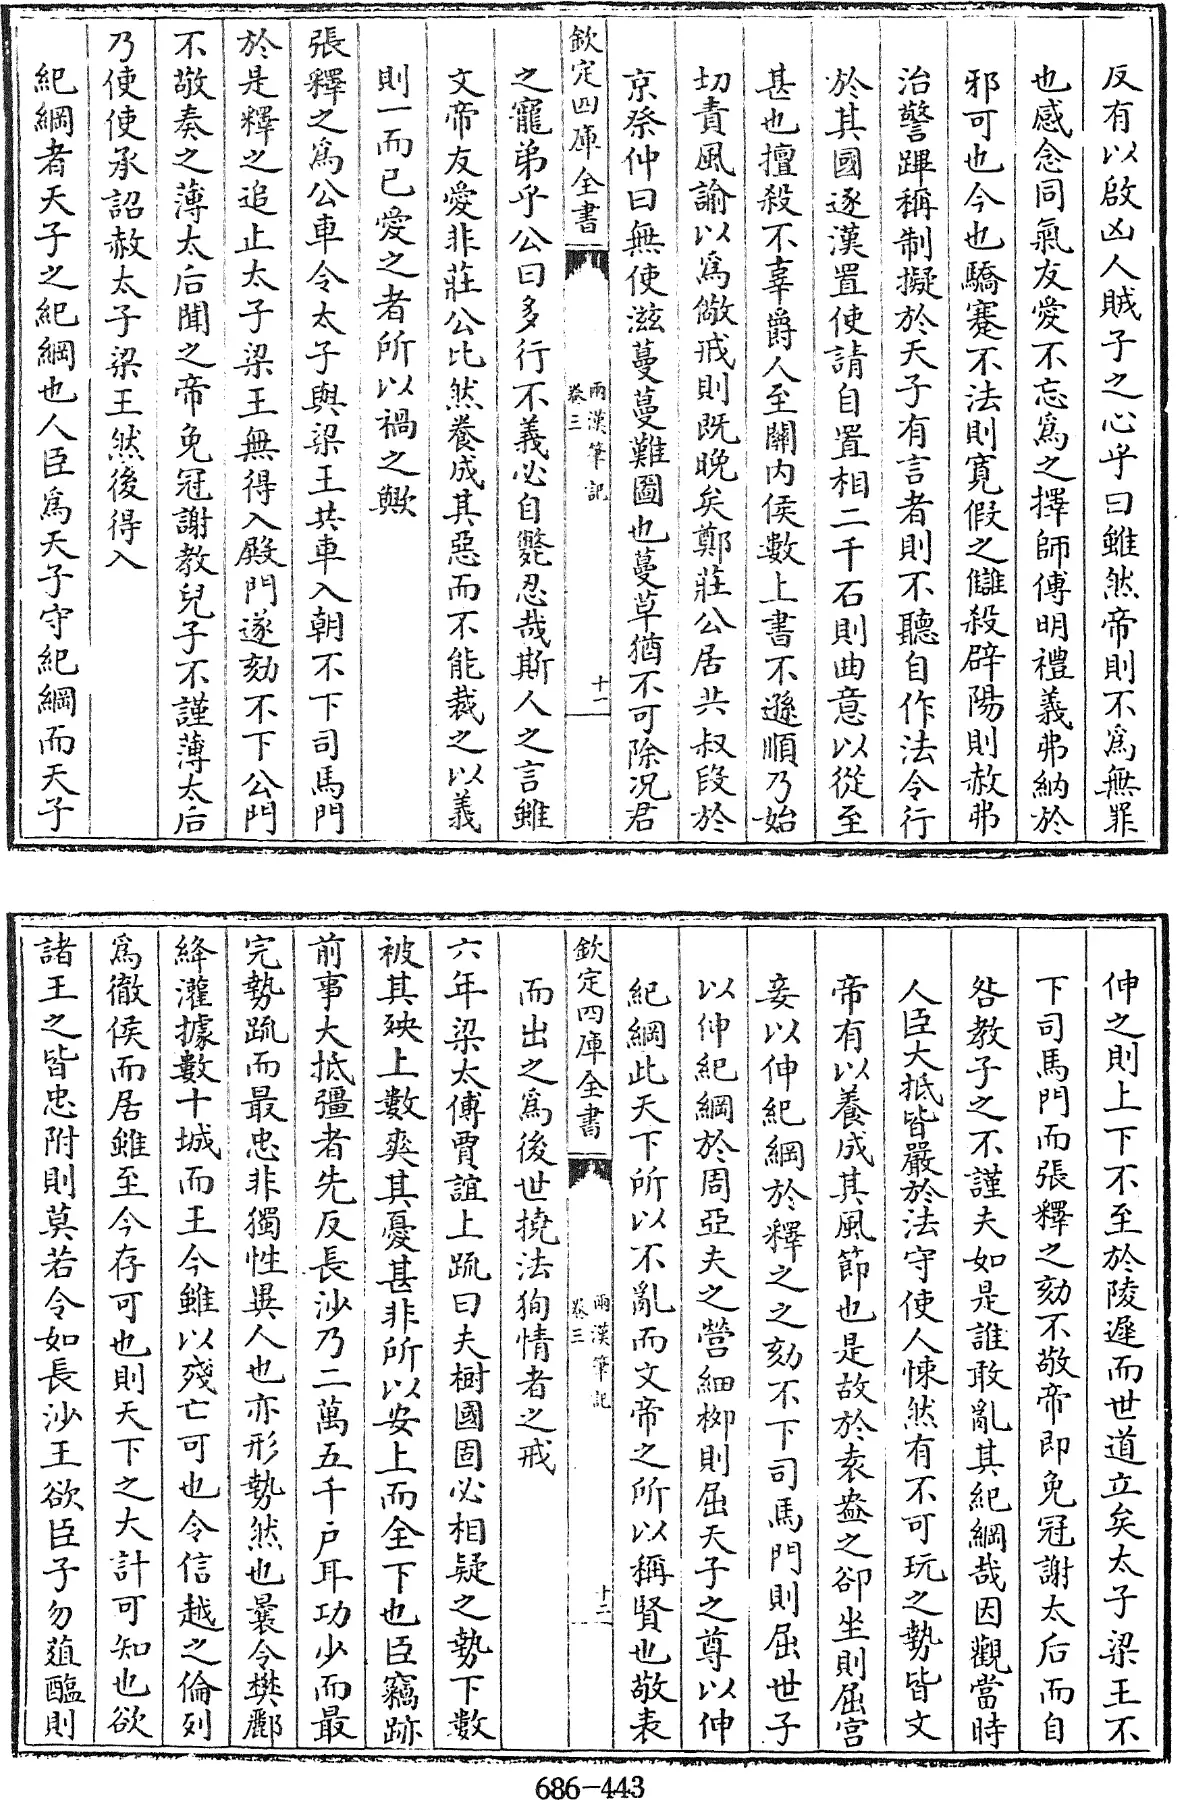 反有以啟凶人賊子之心乎曰雖然帝則不為無罪
也感念同氣友愛不忘為之擇師傅明禮義弗納於
邪可也今也驕蹇不法則寛假之讎殺辟陽則赦弗
治警蹕稱制擬於天子有言者則不聽自作法令行
於其國逐漢置使請自置相二千石則曲意以從至
甚也擅殺不辜爵人至關内侯數上書不遜順乃始
切責風諭以為儆戒則既晚矣鄭莊公居共叔段於
京祭仲曰無使滋蔓蔓難圖也蔓草猶不可除况君
欽定四庫全書
兩漢筆記
卷三
十一
之寵弟乎公曰多行不義必自斃忍哉斯人之言雖
文帝友愛非莊公比然養成其惡而不能裁之以義
則一而已愛之者所以禍之歟
張釋之為公車令太子與梁王共車入朝不下司馬門
於是釋之追止太子梁王無得入殿門遂劾不下公門
不敬奏之薄太后聞之帝免冠謝教兒子不謹薄太后
乃使使承詔赦太子梁王然後得入
紀綱者天子之紀綱也人臣為天子守紀綱而天子
伸之則上下不至於陵遲而世道立矣太子梁王不
下司馬門而張釋之劾不敬帝即免冠謝太后而自
咎教子之不謹夫如是誰敢亂其紀綱哉因觀當時
人臣大抵皆嚴於法守使人悚然有不可玩之勢皆文
帝有以養成其風節也是故於袁盎之卻坐則屈宫
妾以伸紀綱於釋之之劾不下司馬門則屈世子
以伸紀綱於周亞夫之營細柳則屈天子之尊以伸
紀綱此天下所以不亂而文帝之所以稱賢也敬表
欽定四庫全書
兩漢筆記
卷三
十二
而出之為後世撓法狥情者之戒
六年梁太傅賈誼上疏曰夫樹國固必相疑之勢下數
被其殃上數爽其憂甚非所以安上而全下也臣竊跡
前事大抵彊者先反長沙乃二萬五千户耳功少而最
完勢疏而最忠非獨性異人也亦形勢然也曩令樊酈
絳灌據數十城而王今雖以殘亡可也令信越之倫列
為徹侯而居雖至今存可也則天下之大計可知也欲
諸王之皆忠附則莫若令如長沙王欲臣子勿葅醢則
686-443